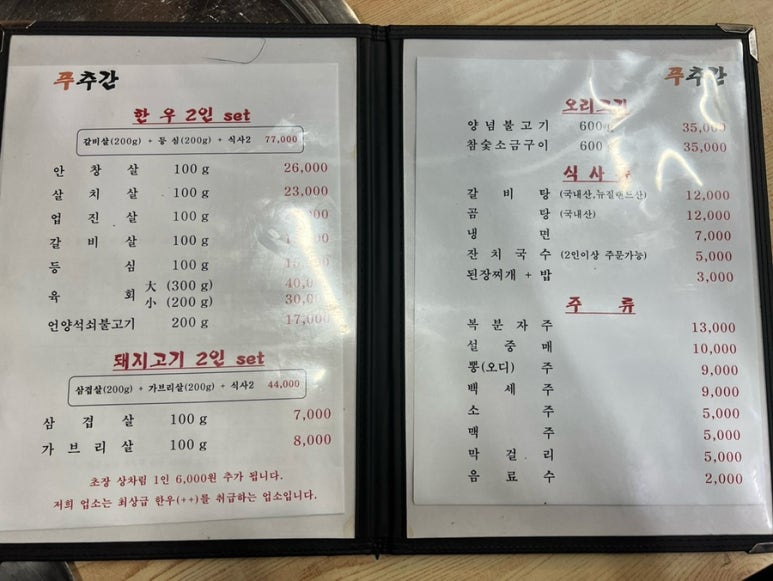 푸추간
한 우 2인 set
갈비살(200g) + 등 심(200g) + 식사2 77,000
안 창 살 100 g 26,000
살 치 살 100 g 23,000
업 진 살 100 g
갈 비 살 100 g
등 심 100 g
육 회 大 (300 g) 40,000
小 (200 g) 30,000
언양석쇠불고기 200 g 17,000
돼지고기 2인 set
삼겹살(200g) + 가브리살(200g) + 식사2 44,000
삼 겹 살 100 g 7,000
가 브 리 살 100 g 8,000
초장 상차림 1인 6,000원 추가 됩니다.
저희 업소는 최상급 한우(++)를 취급하는 업소입니다.
푸추간
오리고기
양 념 불 고 기 600 g 35,000
참숯소금구이 600 g 35,000
식 사
갈 비 탕 (국내산,뉴질랜드산) 12,000
곰 탕 (국내산) 12,000
냉 면 7,000
잔 치 국 수 (2인이상 주문가능) 5,000
된장찌개 + 밥 3,000
주 류
복 분 자 주 13,000
설 중 매 10,000
뽕(오디) 주 9,000
백 세 주 9,000
소 주 5,000
맥 주 5,000
막 걸 리 5,000
음 료 수 2,000